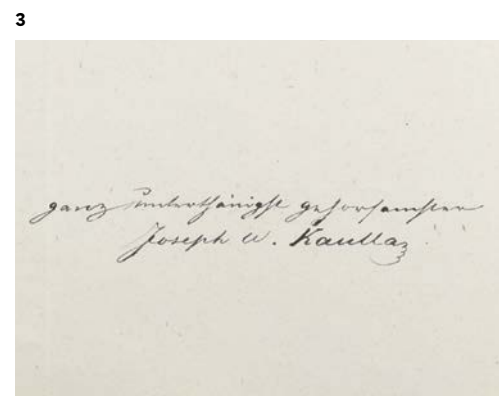 3
ganz unterthänigst gehorsamster
Joseph W. Kaulla